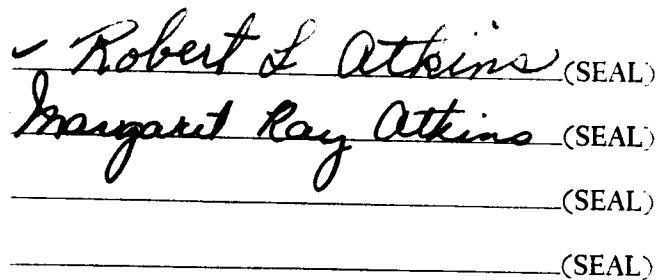 ✓ Robert L Atkins (SEAL)
Margaret Ray Atkins (SEAL)
(SEAL)
(SEAL)